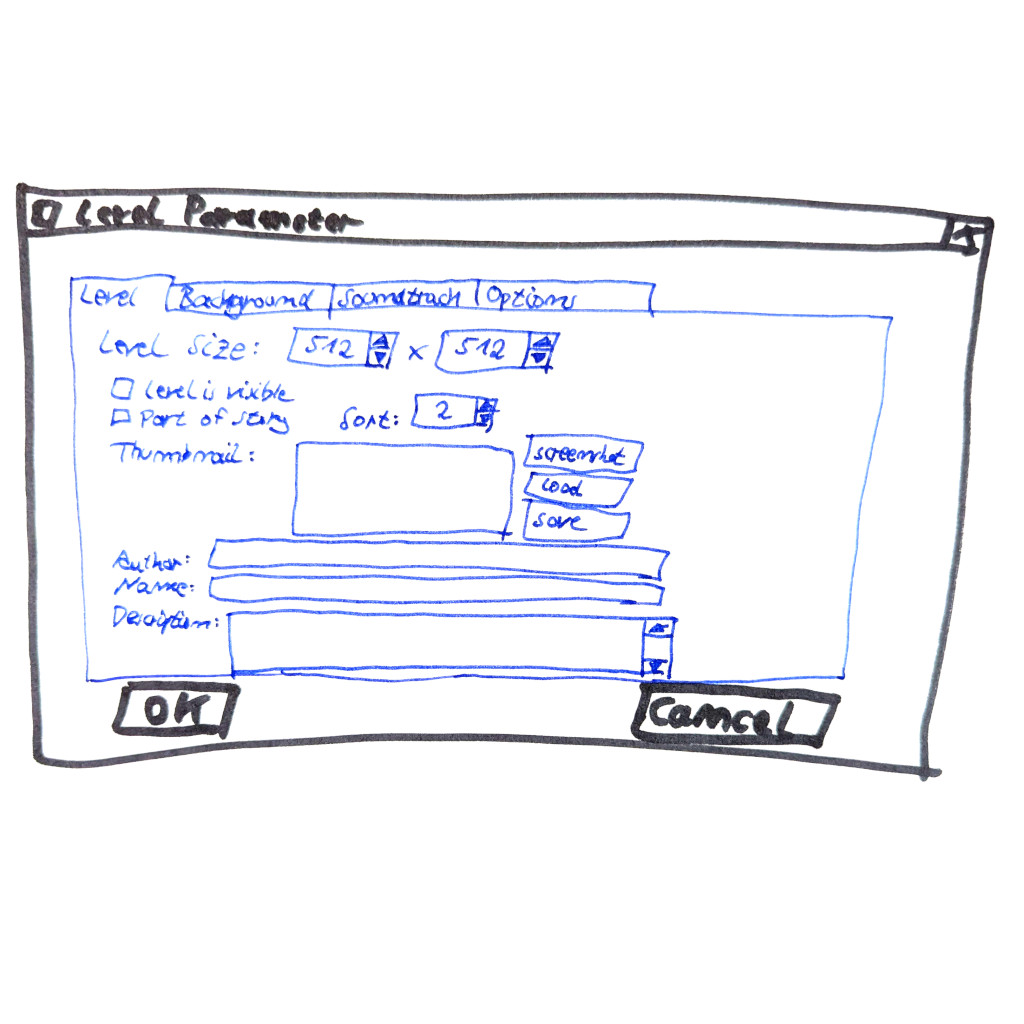 Level Parameter
Level Background Soundtrack Options
Level Size: 512 x 512
Level is visible
Part of story Sort: 2
Thumbnail: screenshot
load
save
Author:
Name:
Description:
OK Cancel